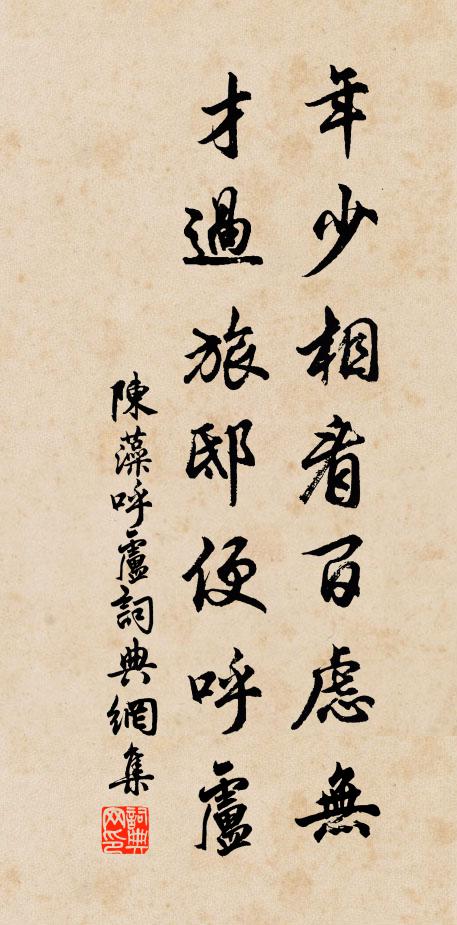 年少相看百慮無
才過旅邸便呼盧
陳藻呼盧詞典網集
詞典网印